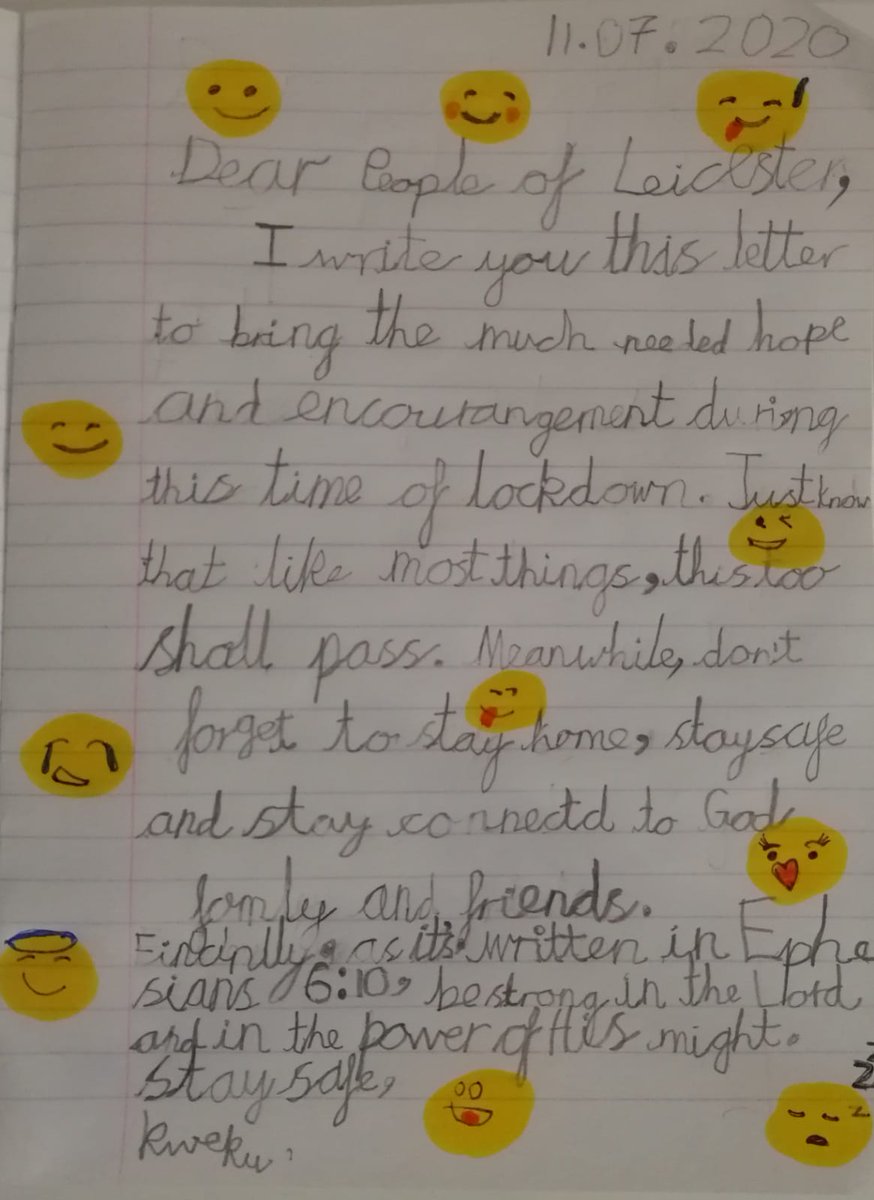 11.07.2020
Dear People of Leicester,
I write you this letter
to bring the much needed hope
and encourangement during
this time of lockdown. Just know
that like most things, this too
shall pass. Meanwhile, don't
forget to stay home, stay safe
and stay connectd to God
famly and friends.
as it's written in Ephe
sians 6:10, be strong in the Lord
and in the power of His might.
stay safe,
Kweku.